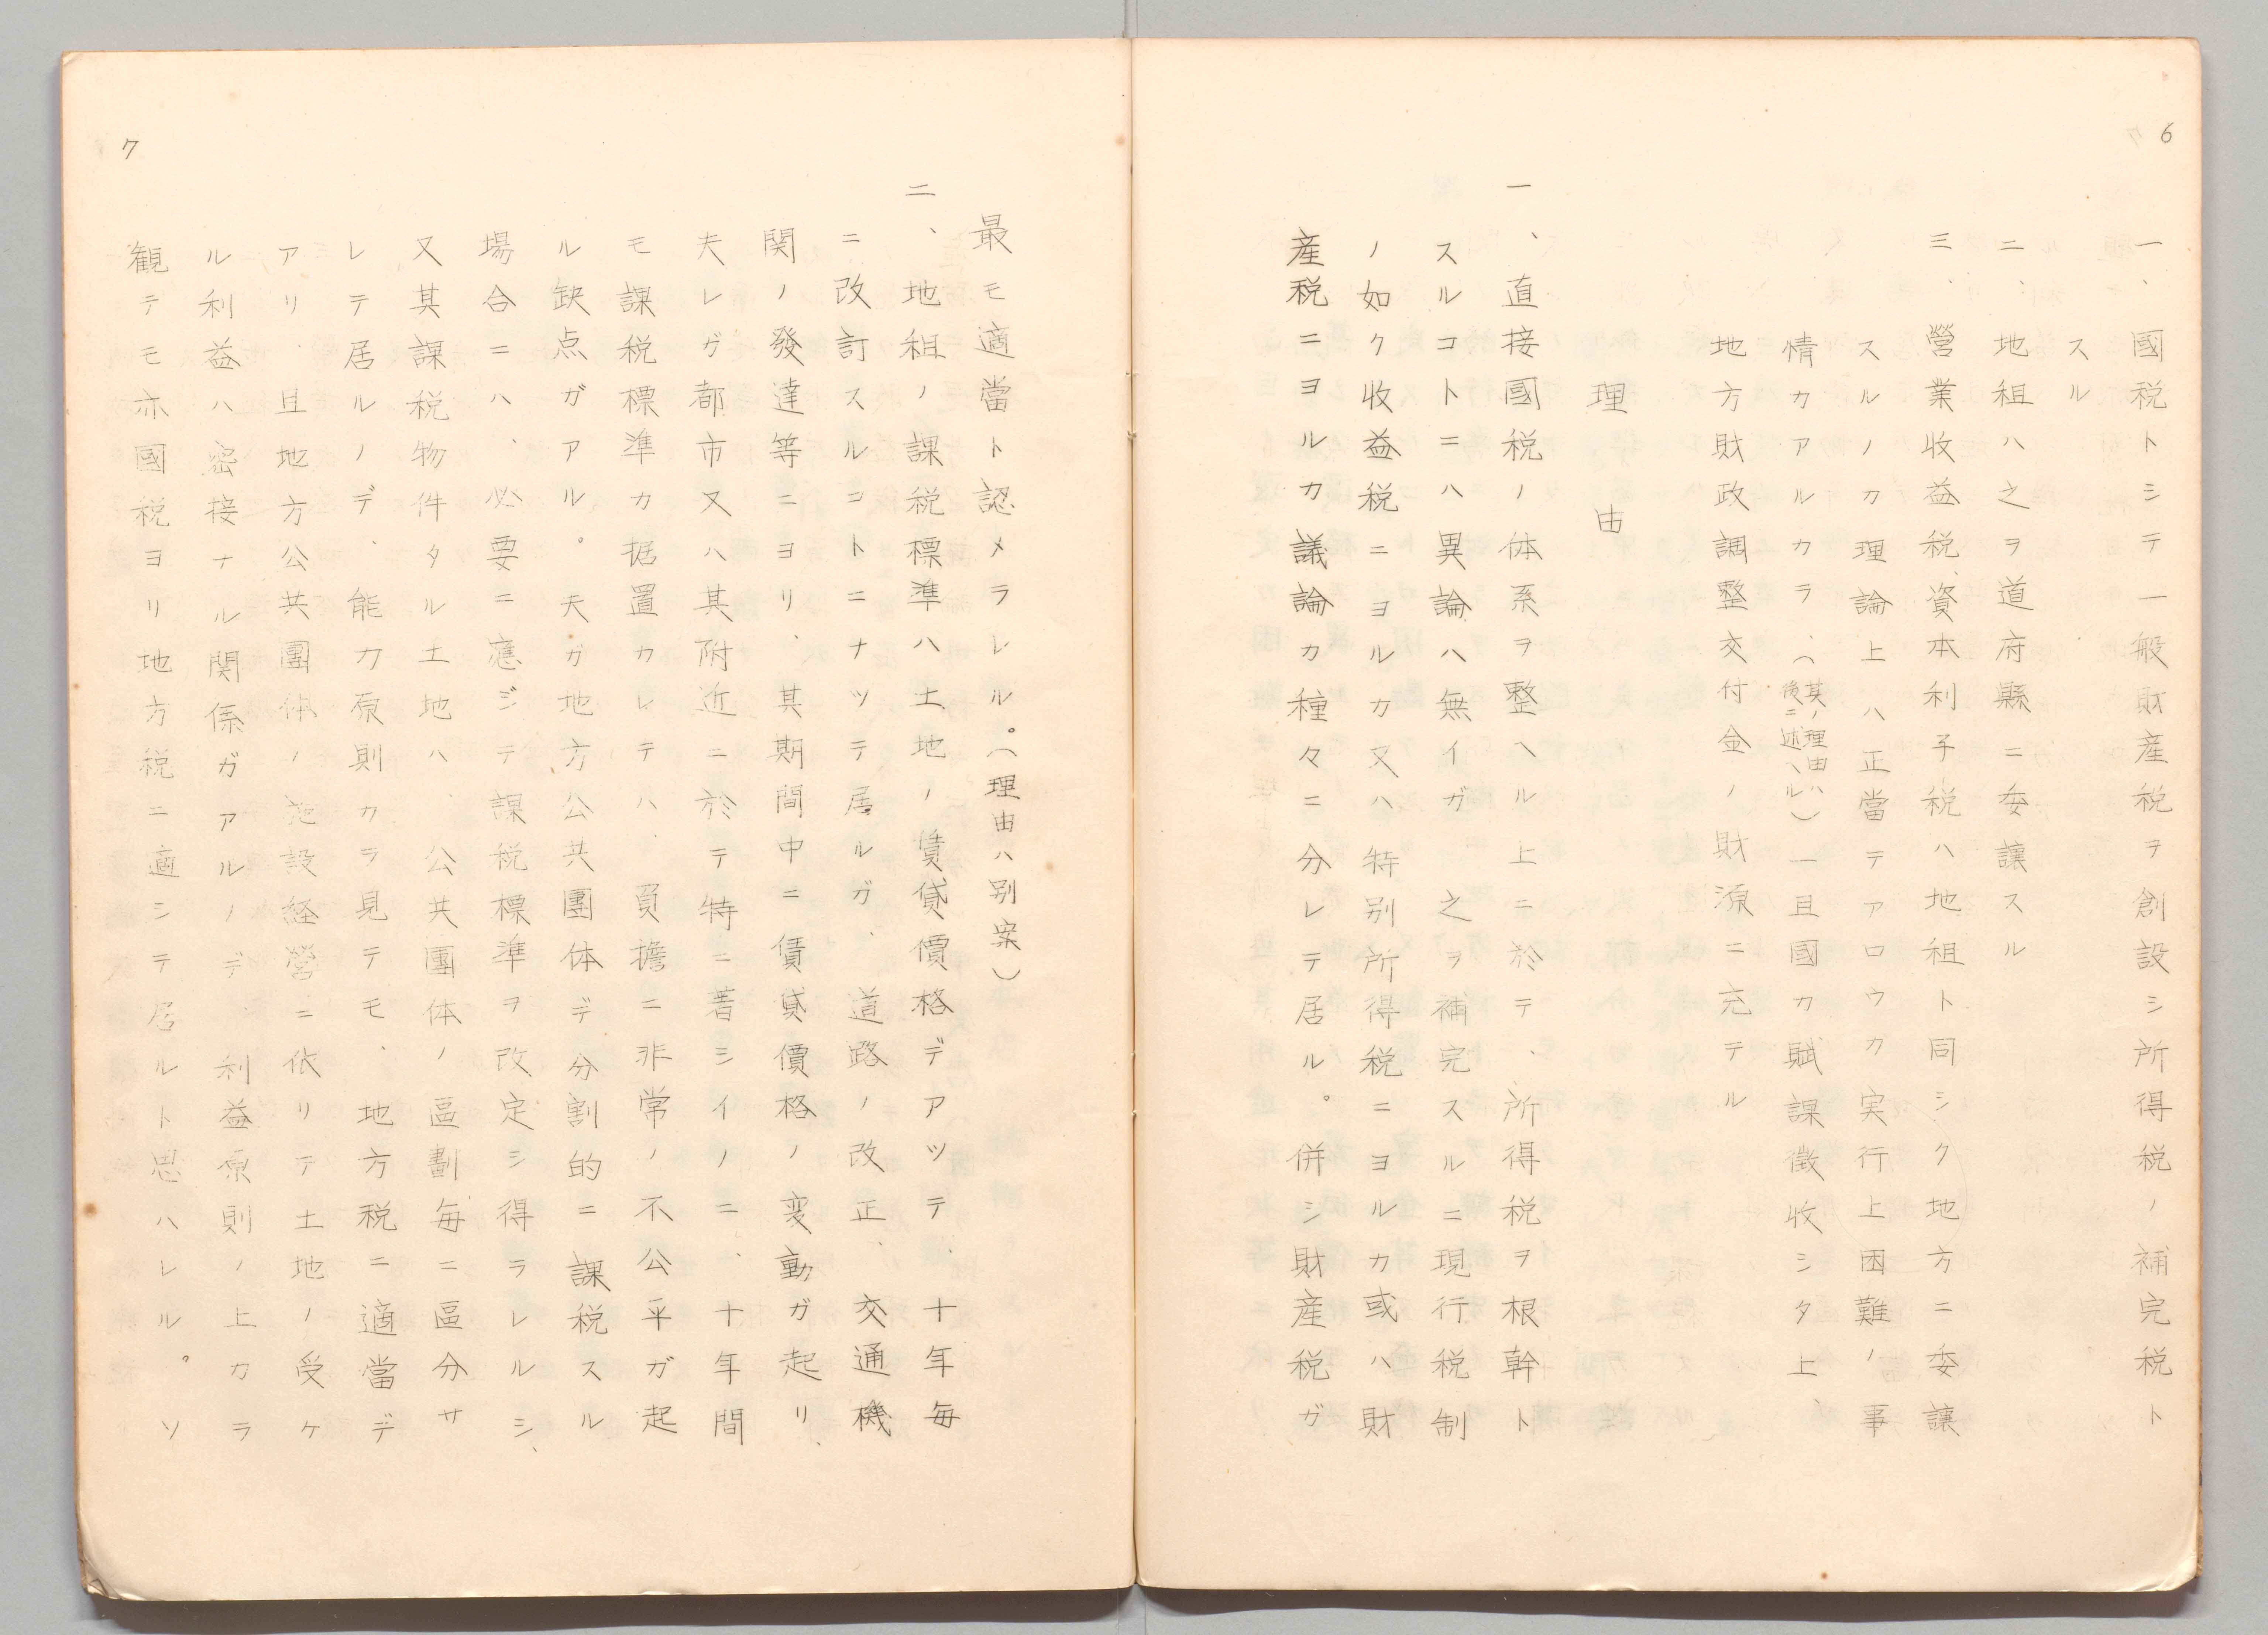 6
一、國税トシテ一般財産税ヲ創設シ所得税ノ補完税ト
スル
二、地租ハ之ヲ道府縣ニ委讓スル
三、營業收益税、資本利子税ハ地租ト同シク地方ニ委讓
スルノカ理論上ハ正當テアロウカ実行上困難ノ事
情カアルカラ、(其ノ理由ハ後ニ述ヘル)一旦國カ賦課徴收シタ上、
地方財政調整交付金ノ財源ニ充テル
理由
一、直接國税ノ体系ヲ整ヘル上ニ於テ、所得税ヲ根幹ト
スルコトニハ異論ハ無イガ 之ヲ補完スルニ現行税制
ノ如ク收益税ニヨルカ又ハ特別所得税ニヨルカ或ハ財
産税ニヨルカ議論カ種々ニ分レテ居ル。併シ財産税ガ
7
最モ適當ト認メラレル。(理由ハ別案)
二、地租ノ課税標準ハ土地ノ賃貸價格デアツテ、十年毎
ニ改訂スルコトニナツテ居ルガ、道路ノ改正、交通機
関ノ發達等ニヨリ、其期間中ニ賃貸價格ノ変動ガ起リ、
夫レガ都市又ハ其附近ニ於テ特ニ著シイノニ、十年間
モ課税標準カ据置カレテハ、負擔ニ非常ノ不公平ガ起
ル缺点ガアル。夫ガ地方公共團体デ分割的ニ課税スル
場合ニハ、必要ニ應ジテ課税標準ヲ改定シ得ラレルシ、
又其課税物件タル土地ハ、公共團体ノ區劃毎ニ區分サ
レテ居ルノデ、能力原則カラ見テモ、地方税ニ適當デ
アリ、且地方公共團体ノ施設経營ニ依リテ土地ノ受ケ
ル利益ハ密接ナル関係ガアルノデ、利益原則ノ上カラ
観テモ亦國税ヨリ地方税ニ適シテ居ルト思ハレル。ソ